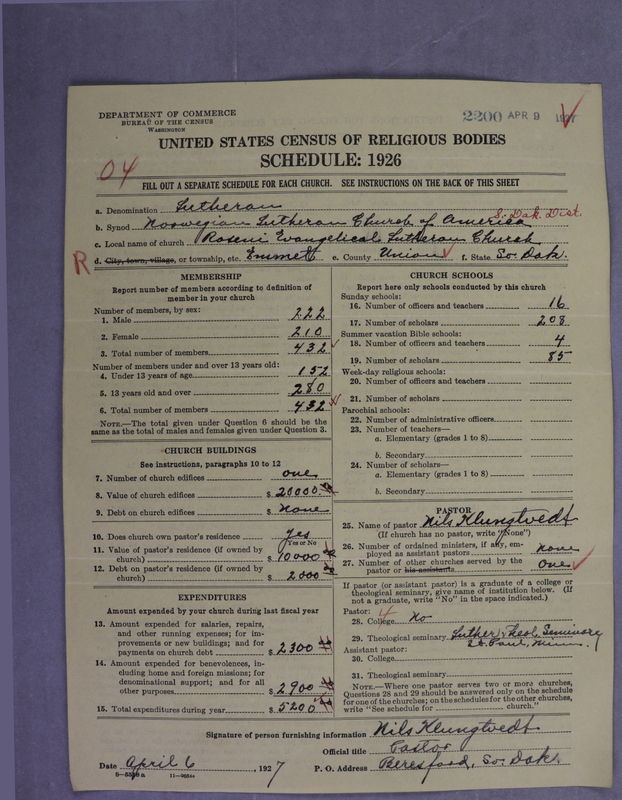 DEPARTMENT OF COMMERCE
BUREAU OF THE CENSUS
WASHINGTON
2200 APR 9 1927
UNITED STATES CENSUS OF RELIGIOUS BODIES
SCHEDULE: 1926
04
FILL OUT A SEPARATE SCHEDULE FOR EACH CHURCH. SEE INSTRUCTIONS ON THE BACK OF THIS SHEET
a. Denomination Lutheran
S. Dak. Dist.
b. Synod Norwegian Lutheran Church of America
c. Local name of church Roseni Evangelical Lutheran Church
R d. City, town, village, or township, etc. Emmet e. County Union f. State So. Dak.
MEMBERSHIP
Report number of members according to definition of
member in your church
Number of members, by sex:
1. Male 222
2. Female 210
3. Total number of members 432
Number of members under and over 13 years old:
4. Under 13 years of age 152
5. 13 years old and over 280
6. Total number of members 432
NOTE.—The total given under Question 6 should be
same as the total of males and females given under Question 3.
CHURCH BUILDINGS
See instructions, paragraphs 10 to 12
7. Number of church edifices one
8. Value of church edifices $ 20000.
9. Debt on church edifices $ None
10. Does church own pastor's residence Yes
Yes or No
11. Value of pastor's residence (if owned by
church) $ 10000
12. Debt on pastor's residence (if owned by
church) $ 2000
EXPENDITURES
Amount expended by your church during last fiscal year
13. Amount expended for salaries, repairs,
and other running expenses; for im-
provements or new buildings; and for
payments on church debt $ 2300
14. Amount expended for benevolences, in-
cluding home and foreign missions; for
denominational support; and for all
other purposes $ 2900
15. Total expenditures during year $ 5200
CHURCH SCHOOLS
Report here only schools conducted by this church
Sunday schools:
16. Number of officers and teachers 16
17. Number of scholars 208
Summer vacation Bible schools:
18. Number of officers and teachers 4
19. Number of scholars 85
Week-day religious schools:
20. Number of officers and teachers
21. Number of scholars
Parochial schools:
22. Number of administrative officers
23. Number of teachers—
a. Elementary (grades 1 to 8)
b. Secondary
24. Number of scholars—
a. Elementary (grades 1 to 8)
b. Secondary
PASTOR
25. Name of pastor Nils Klungtvedt
(If church has no pastor, write "None")
26. Number of ordained ministers, if any, em-
ployed as assistant pastors none
27. Number of other churches served by the
pastor or his assistants one
If pastor (or assistant pastor) is a graduate of a college or
theological seminary, give name of institution below. (If
not a graduate, write "No" in the space indicated.)
Pastor: 4
28. College No
29. Theological seminary Luther Theol. Seminary
St. Paul, Minn.
Assistant pastor:
30. College
31. Theological seminary
NOTE.—Where one pastor serves two or more churches,
Questions 28 and 29 should be answered only on the schedule
for one of the churches; on the schedules for the other churches,
write "See schedule for church."
Signature of person furnishing information Nils Klungtvedt
Official title Pastor
Date April 6, 1927 P. O. Address Beresford, So. Dak.
8-5539 a 11-9654